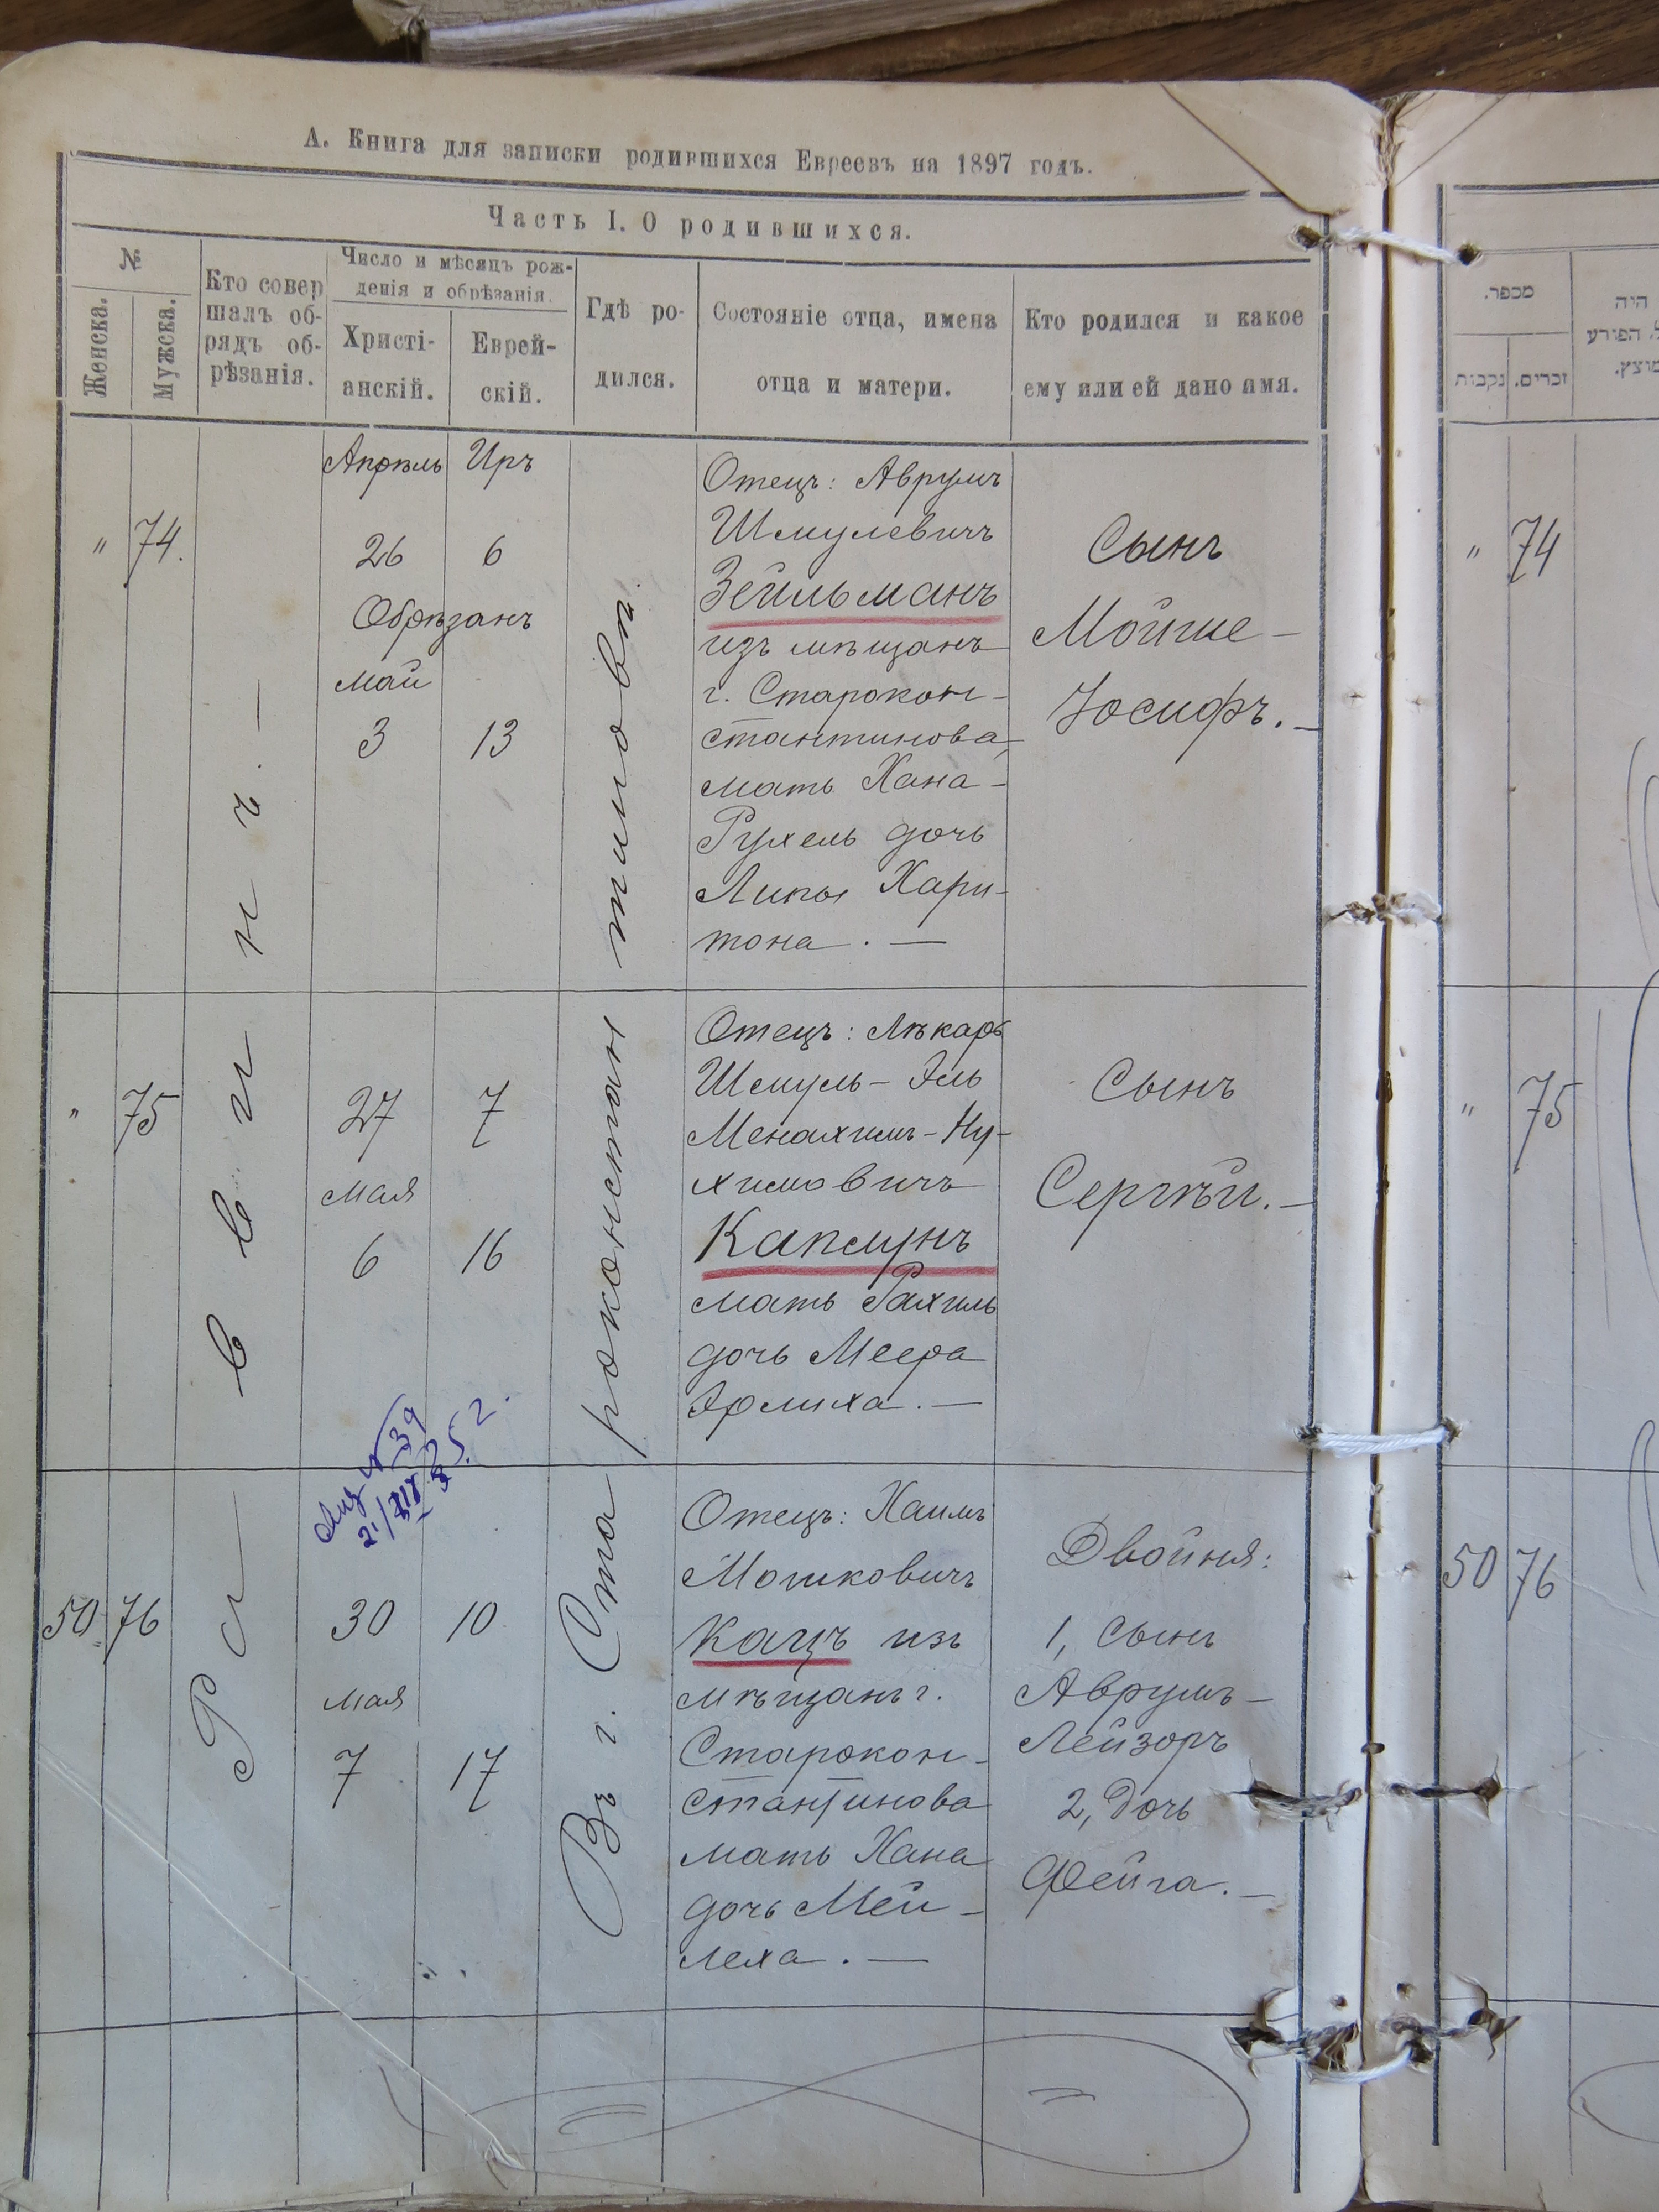 А. Книга для записки родившихся Евреевъ на 1897 годъ.
Часть I. О родившихся.
№
Женска.
Мужска.
Кто совер
шалъ об-
рядъ об-
рѣзанія.
Число и мѣсяцъ рож-
денія и обрѣзанія.
Христі-
анскій.
Еврей-
скій.
Гдѣ ро-
дился.
Состояніе отца, имена
отца и матери.
Кто родился и какое
ему или ей дано имя.
Раввинъ. —
Въ г. Староконстантиновѣ.
" 74.
Апрѣль Иръ
26 6
Обрѣзанъ
май
3 13
Отецъ: Аврумъ
Шмулевичъ
Зейльманъ
изъ мѣщанъ
г. Старокон-
стантинова,
мать Хана-
Рухель дочь
Липы Хари-
тона. —
Сынъ
Мойше-
Іосифъ. —
" 75
27 7
мая
6 16
Отецъ: Лѣкарь
Шмуль-Эль
Менахимъ-Ну-
химовичъ
Капмунъ
мать Рахиль
дочь Меера
Эрлиха. —
Сынъ
Сергѣй. —
№ 39
50 76
30 10
мая
7 17
Отецъ: Хаимъ
Мошковичъ
Кацъ изъ
мѣщанъ г.
Старокон-
стантинова
мать Хана
дочь Мей-
леха. —
Двойня:
1, Сынъ
Аврумъ-
Лейзоръ
2, Дочь
Фейга. —
מכפר.
נקבות
זכרים.
היה
הפורע
מוצץ.
" 74
" 75
50 76